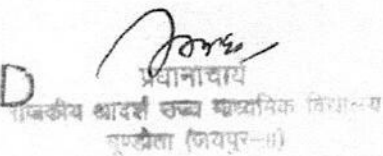 D
प्रधानाचार्य
राजकीय आदर्श उच्च माध्यमिक विद्यालय
(जयपुर-II)